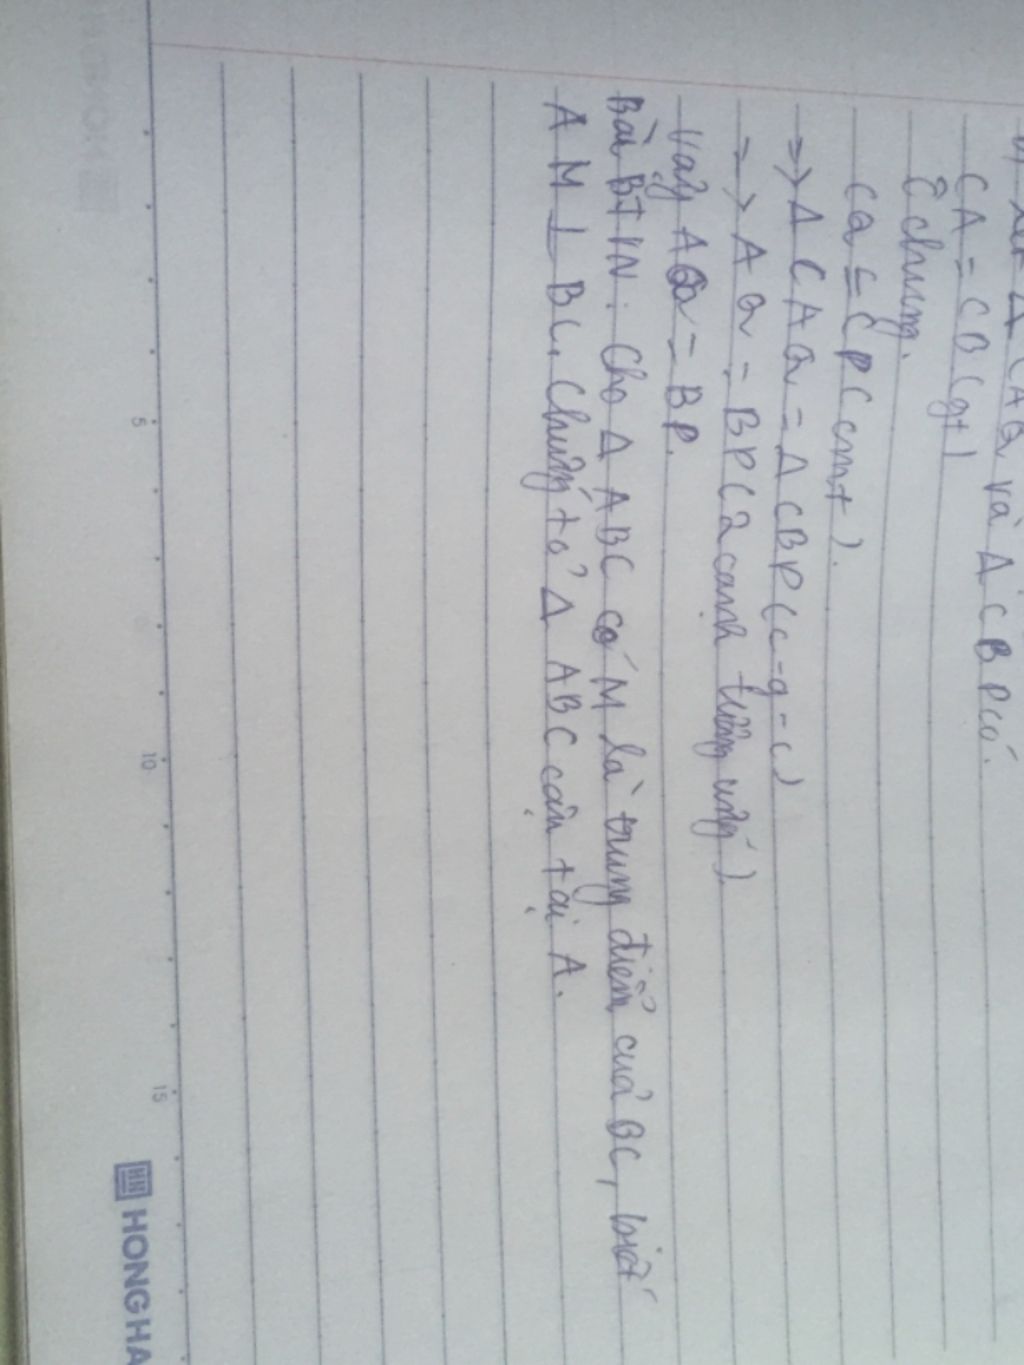 b) Xét Δ CAQ và Δ CBP có.
CA = CB (gt)
Ĉ chung.
CQ = CP (cmt).
=> Δ CAQ = Δ CBP (c-g-c)
=> AQ = BP (2 cạnh tương ứng).
Vậy AQ = BP.
Bài BTVN: Cho Δ ABC có M là trung điểm của BC, biết
AM ⊥ BC. Chứng tỏ Δ ABC cân tại A.
5
10
15
HONG HA